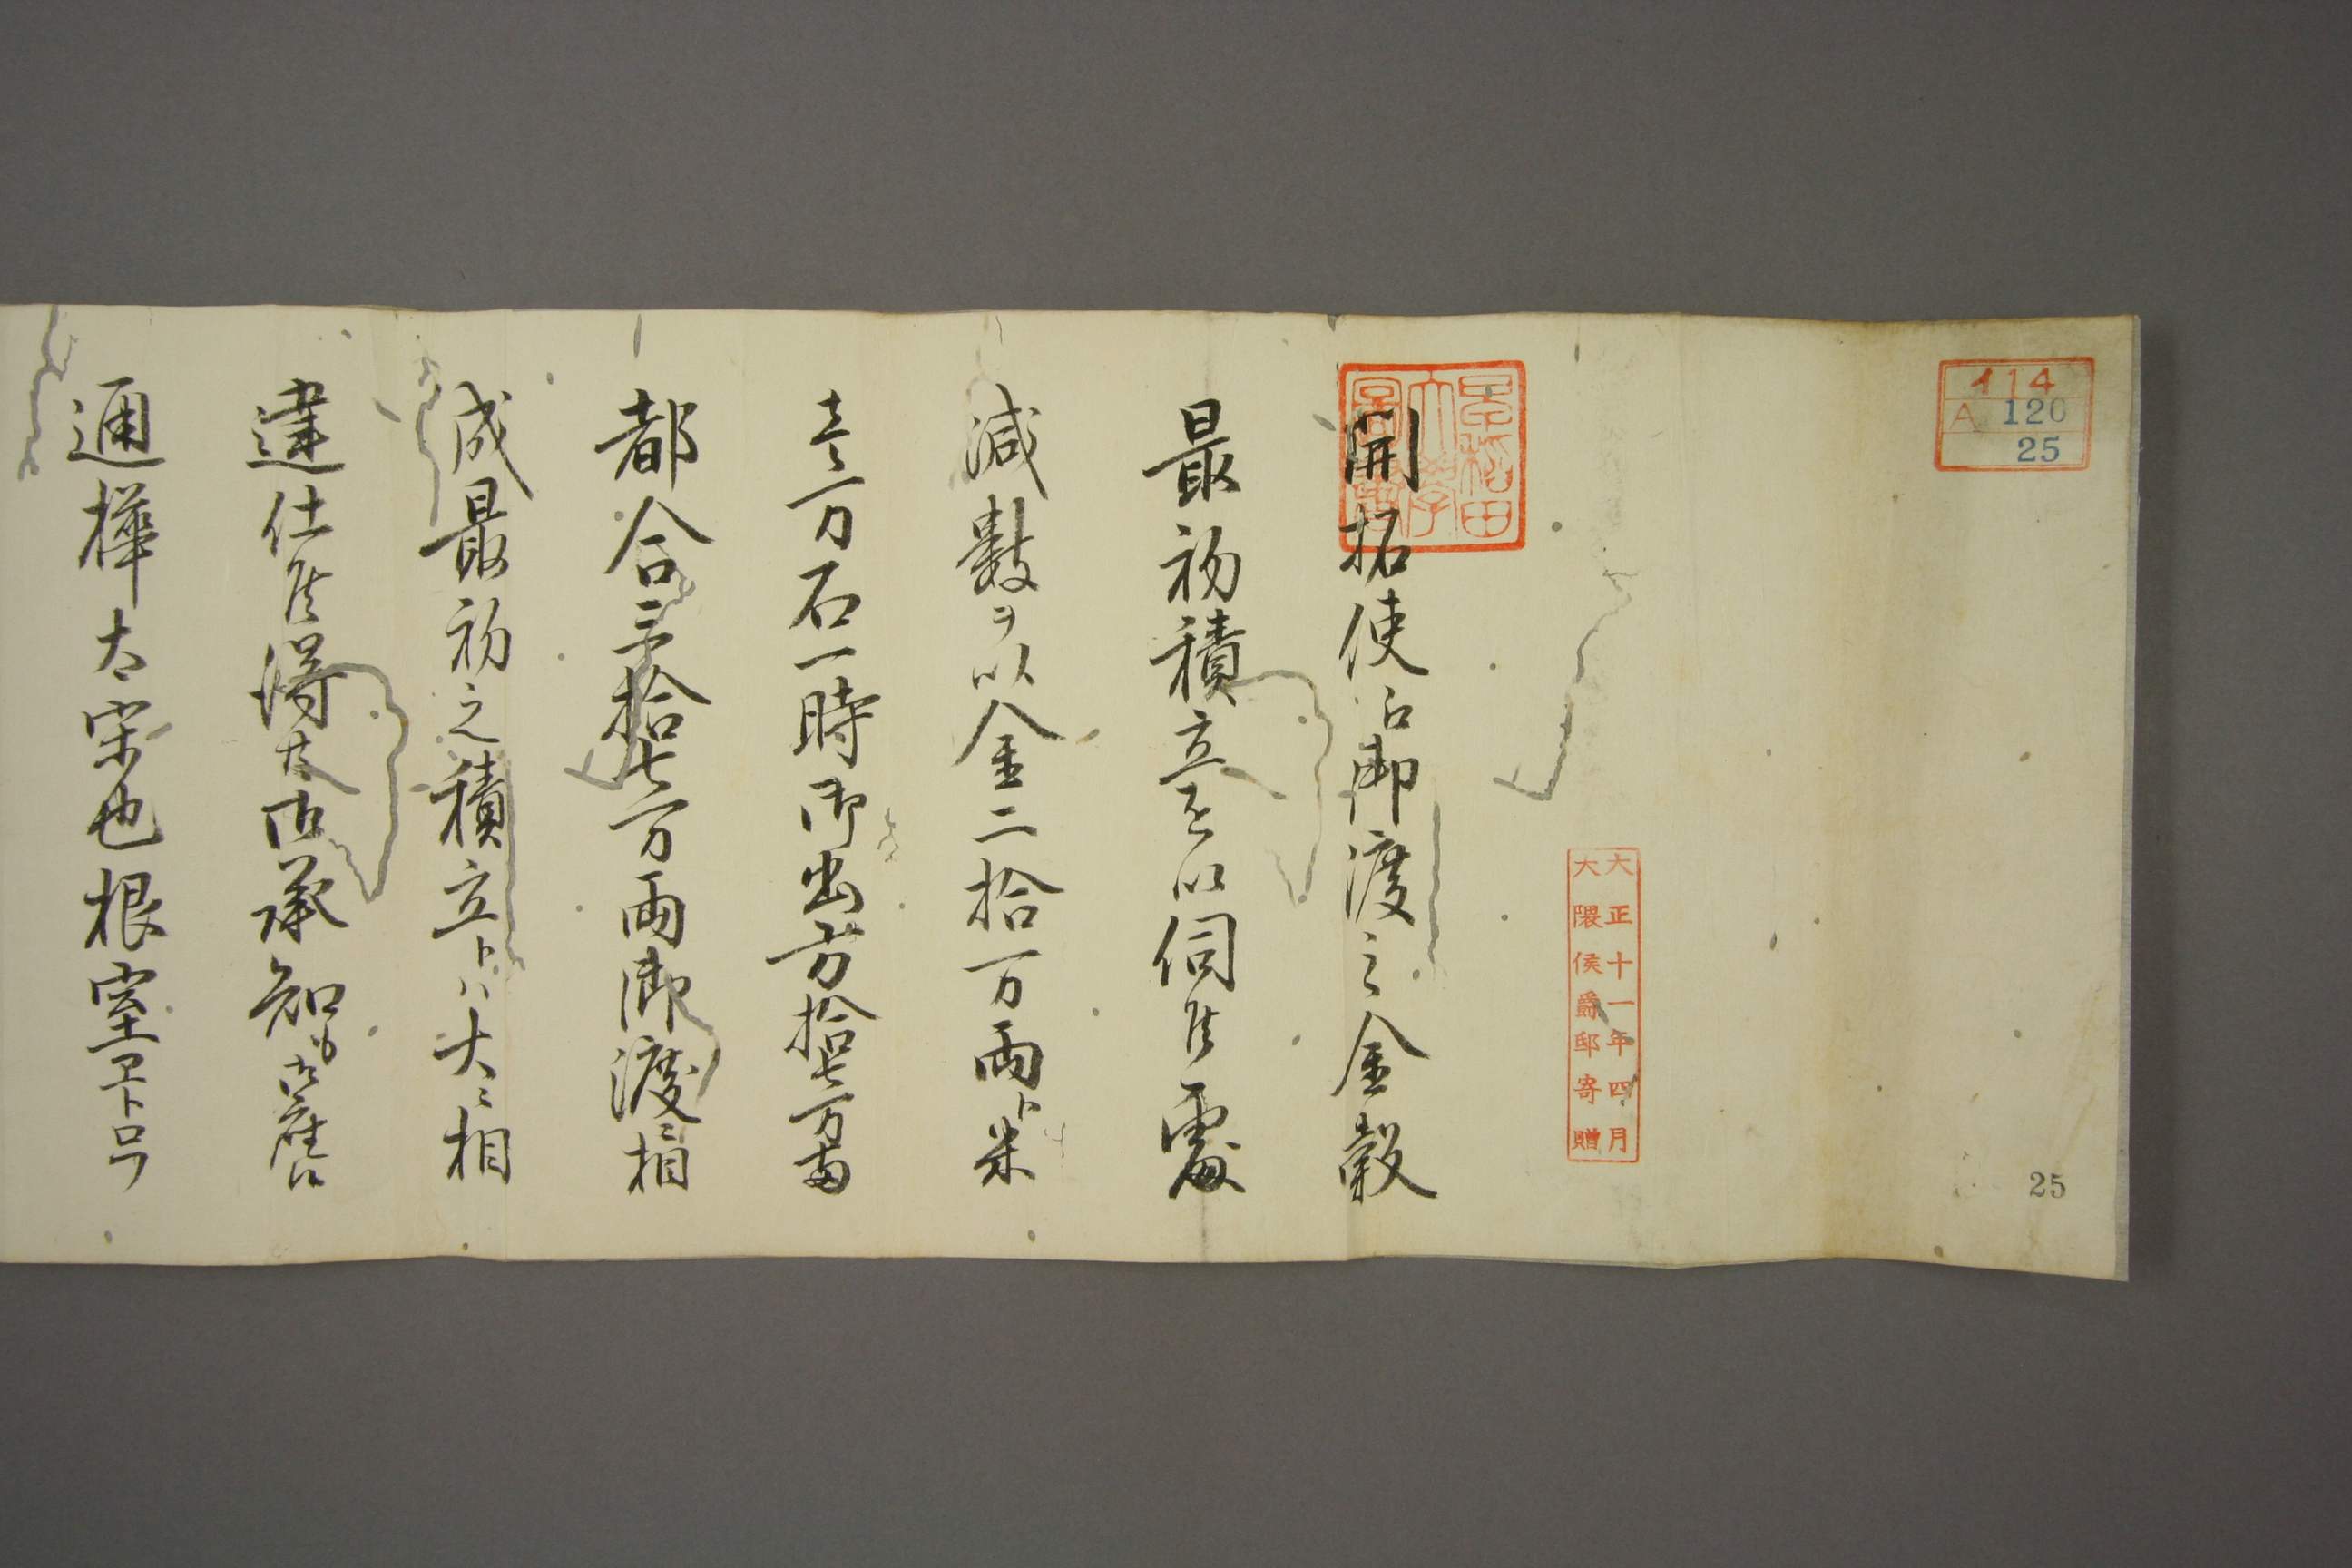 イ14
A 120
25
早稻田
大學
圖書
大正十一年四月
大隈侯爵邸寄贈
25
開拓使江御渡之金穀
最初積立を以伺候處
減數ヲ以金二拾万兩ト米
壱万石一時御出方拾七万両
都合三拾七万両御渡ニ相
成最初之積立トハ大ニ相
違仕候得共御承知も被為在候
通樺太宗也根室